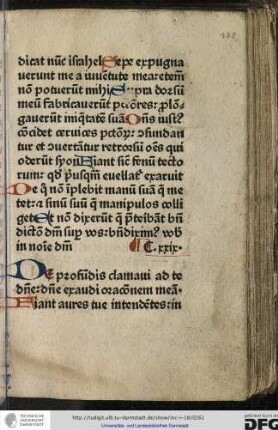 dicat nūc israhel Sepe expugna
uerunt me a iuuētute mea: etem̄
nō potuerūt mihi Supra dorsū
meū fabricauerūt pctōres: plōn-
gauerūt iniqtatē suā Dns iust9
cōcidet ceruices pctōꝝ: ꝯfundan
tur et ꝯuertātur retrorsū oēs qui
oderūt syon Fiant sic̄ fenū tecto
rum: qd̄ pusqm̄ euellat᷑ exaruit
De q nō īplebit manū suā q me
tet: ⁊ sinū suū q manipulos colli
get Et nō dixerūt q pteribāt bn̄
dictō dn̄i sup vos: bn̄dixim9 vob̄
in noīe dn̄i ¶ C.xxix.
DE profūdis clamaui ad te
dn̄e: dn̄e exaudi oracōnem meā
Fiant aures tue intendētes: in
http://tudigit.ulb.tu-darmstadt.de/show/inc-i-18/0261
Universitäts- und Landesbibliothek Darmstadt